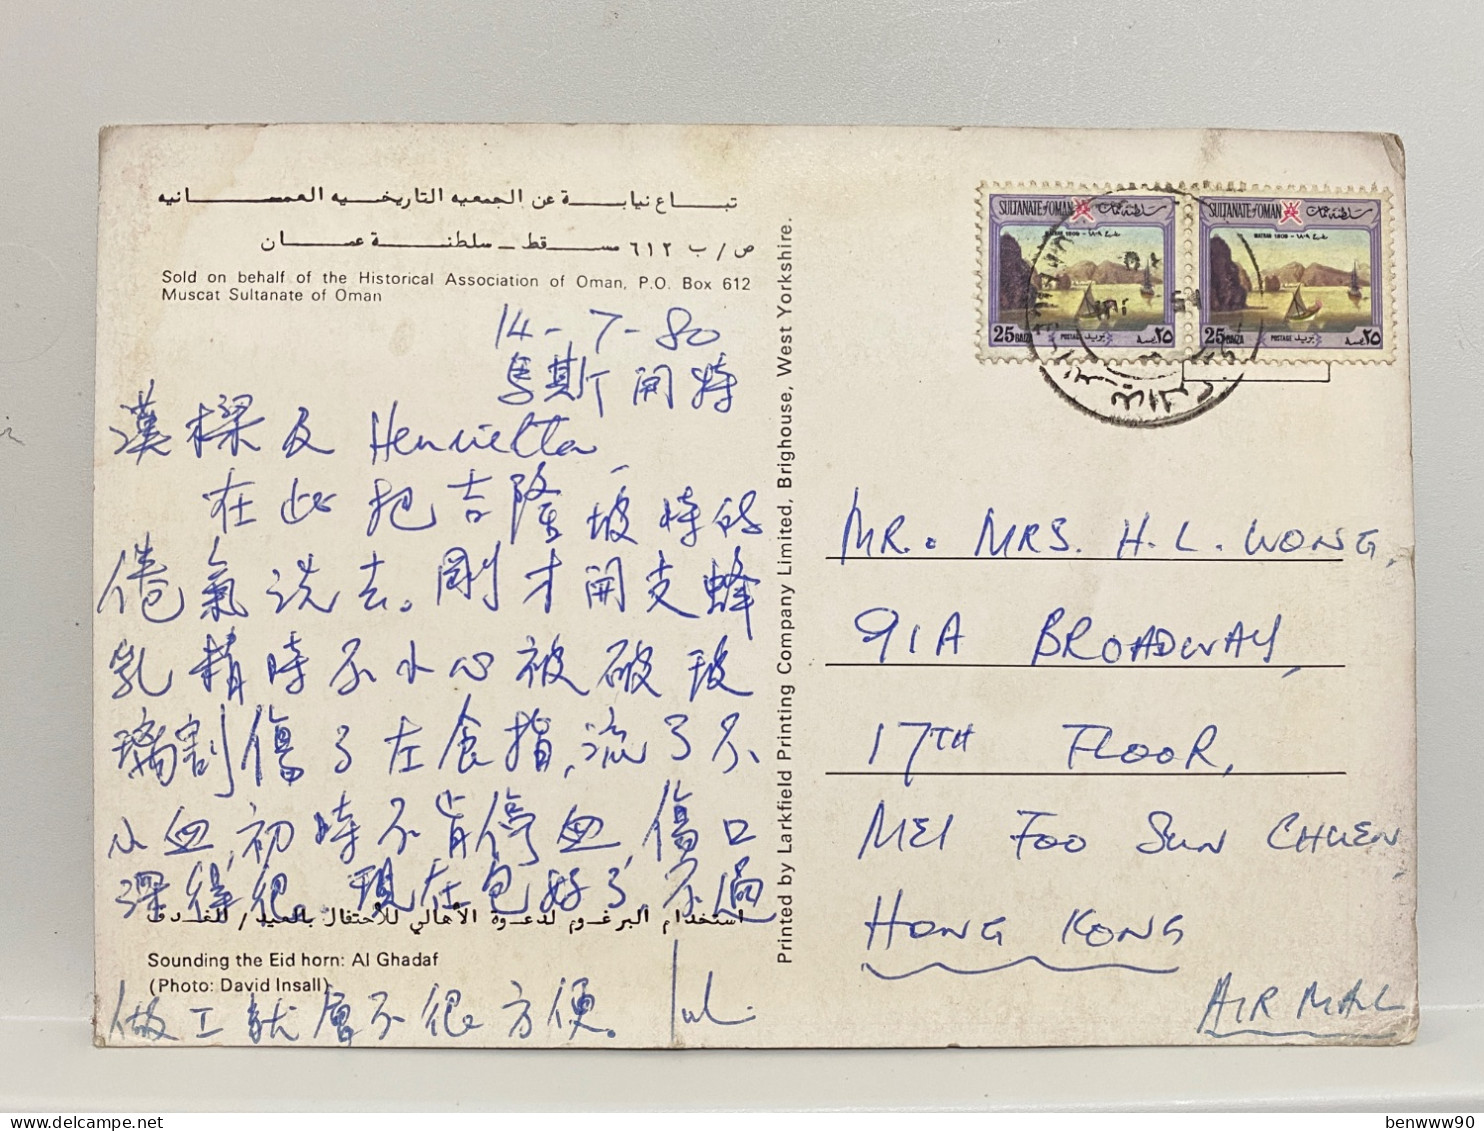 تبــاع نيابــة عن الجمعيه التاريخــيه العمــانيه
ص / ب ٦١٢ مسـقط ــ سلطنـة عمـان
Sold on behalf of the Historical Association of Oman, P.O. Box 612
Muscat Sultanate of Oman
14-7-80
漢樑及 Henrietta
在此把吉隆坡時的
倦氣洗去。剛才開支蜂
乳精時不小心被破玻
璃割傷了左食指,流了不
小血,初時不肯停血,傷口
深得很。現在包好了,不過
استخدام البرغـوم لدعـوة الأهالي للاحتفال بالعيد / للغـدف
Sounding the Eid horn: Al Ghadaf
(Photo: David Insall)
做工就不很方便。
Printed by Larkfield Printing Company Limited, Brighouse, West Yorkshire.
SULTANATE of OMAN سلطنة عمان
25 BAIZA POSTAGE بريد ٢٥
SULTANATE of OMAN سلطنة عمان
25 BAIZA POSTAGE بريد ٢٥
MR. MRS. H. L. WONG,
91A BROADWAY,
17TH FLOOR,
MEI FOO SUN CHUEN,
HONG KONG
AIR MAIL
benwww90